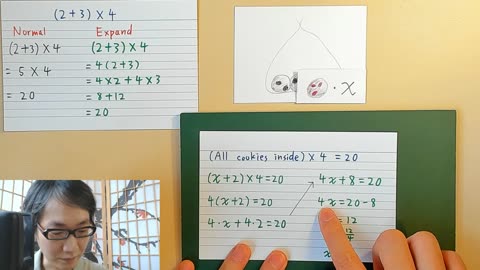 (2+3) × 4
Normal
(2+3) × 4
= 5 × 4
= 20
Expand
(2+3) × 4
= 4(2+3)
= 4×2 + 4×3
= 8+12
= 20
· x
(All cookies inside) × 4 = 20
(x+2) × 4 = 20
4(x+2) = 20
4·x + 4·2 = 20
4x + 8 = 20
4x = 20 - 8
= 12